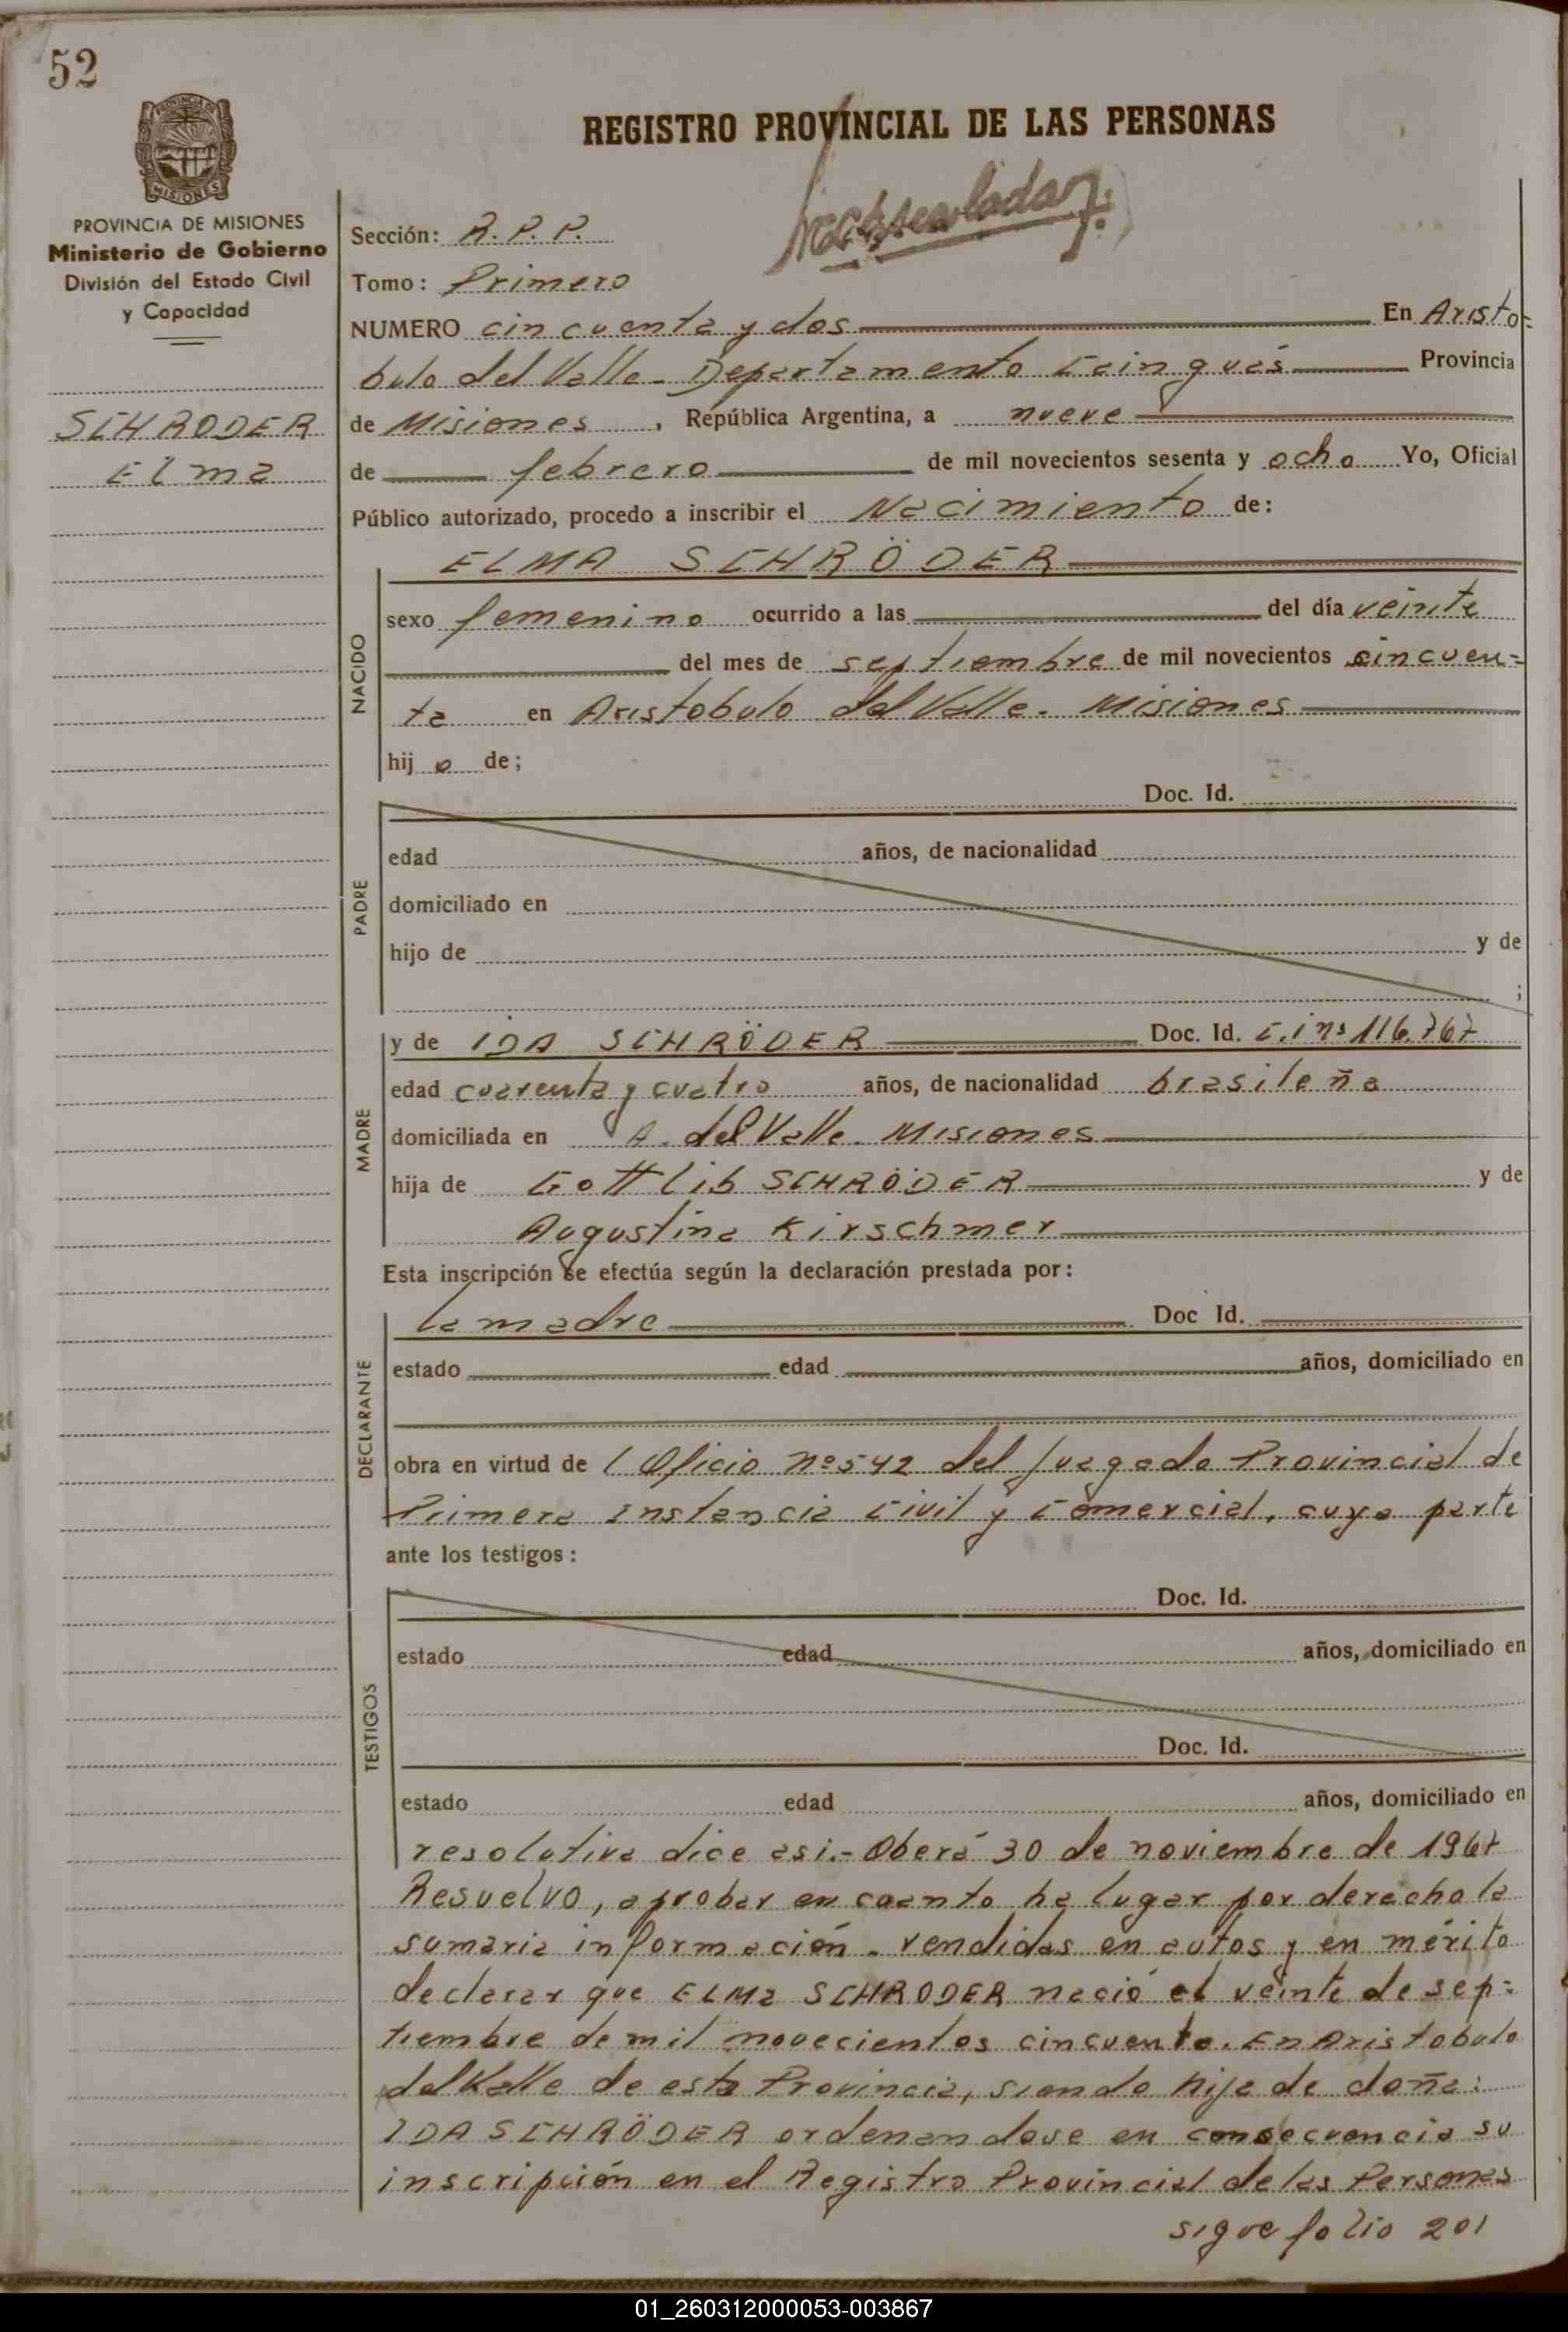 52
PROVINCIA DE MISIONES
Ministerio de Gobierno
División del Estado Civil
y Capacidad
SCHRODER
Elma
REGISTRO PROVINCIAL DE LAS PERSONAS
Sección: R. P. P.
Tomo: Primero
NUMERO cincuenta y dos En Aristo-
bulo del Valle - Departamento Cainguás Provincia
de Misiones, República Argentina, a nueve
de febrero de mil novecientos sesenta y ocho Yo, Oficial
Público autorizado, procedo a inscribir el Nacimiento de:
NACIDO
ELMA SCHRÖDER
sexo femenino ocurrido a las del día veinte
del mes de septiembre de mil novecientos cincuen=
ta en Aristobulo del Valle. Misiones
hij a de;
PADRE
Doc. Id.
edad años, de nacionalidad
domiciliado en
hijo de y de
;
MADRE
y de IDA SCHRÖDER Doc. Id. C.I nº 116.767
edad cuarenta y cuatro años, de nacionalidad brasileña
domiciliada en A. del Valle. Misiones
hija de Gottlib SCHRÖDER y de
Augustina Kirschmer
Esta inscripción se efectúa según la declaración prestada por:
DECLARANTE
la madre Doc Id.
estado edad años, domiciliado en
obra en virtud de l Oficio nº 542 del Juzgado Provincial de
Primera Instancia Civil y Comercial, cuya parte
ante los testigos:
TESTIGOS
Doc. Id.
estado edad años, domiciliado en
Doc. Id.
estado edad años, domiciliado en
resolutiva dice asi.- Oberá 30 de noviembre de 1967
Resuelvo, aprobar en cuanto ha lugar por derecho la
sumaria información - rendidas en autos y en mérito
declarar que ELMa SCHRODER nació el veinte de sep=
tiembre de mil novecientos cincuenta. En Aristobulo
del Valle de esta Provincia, siendo hija de doña:
IDA SCHRÖDER ordenandose en consecuencia su
inscripción en el Registro Provincial de las Personas
sigue folio 201
01_260312000053-003867